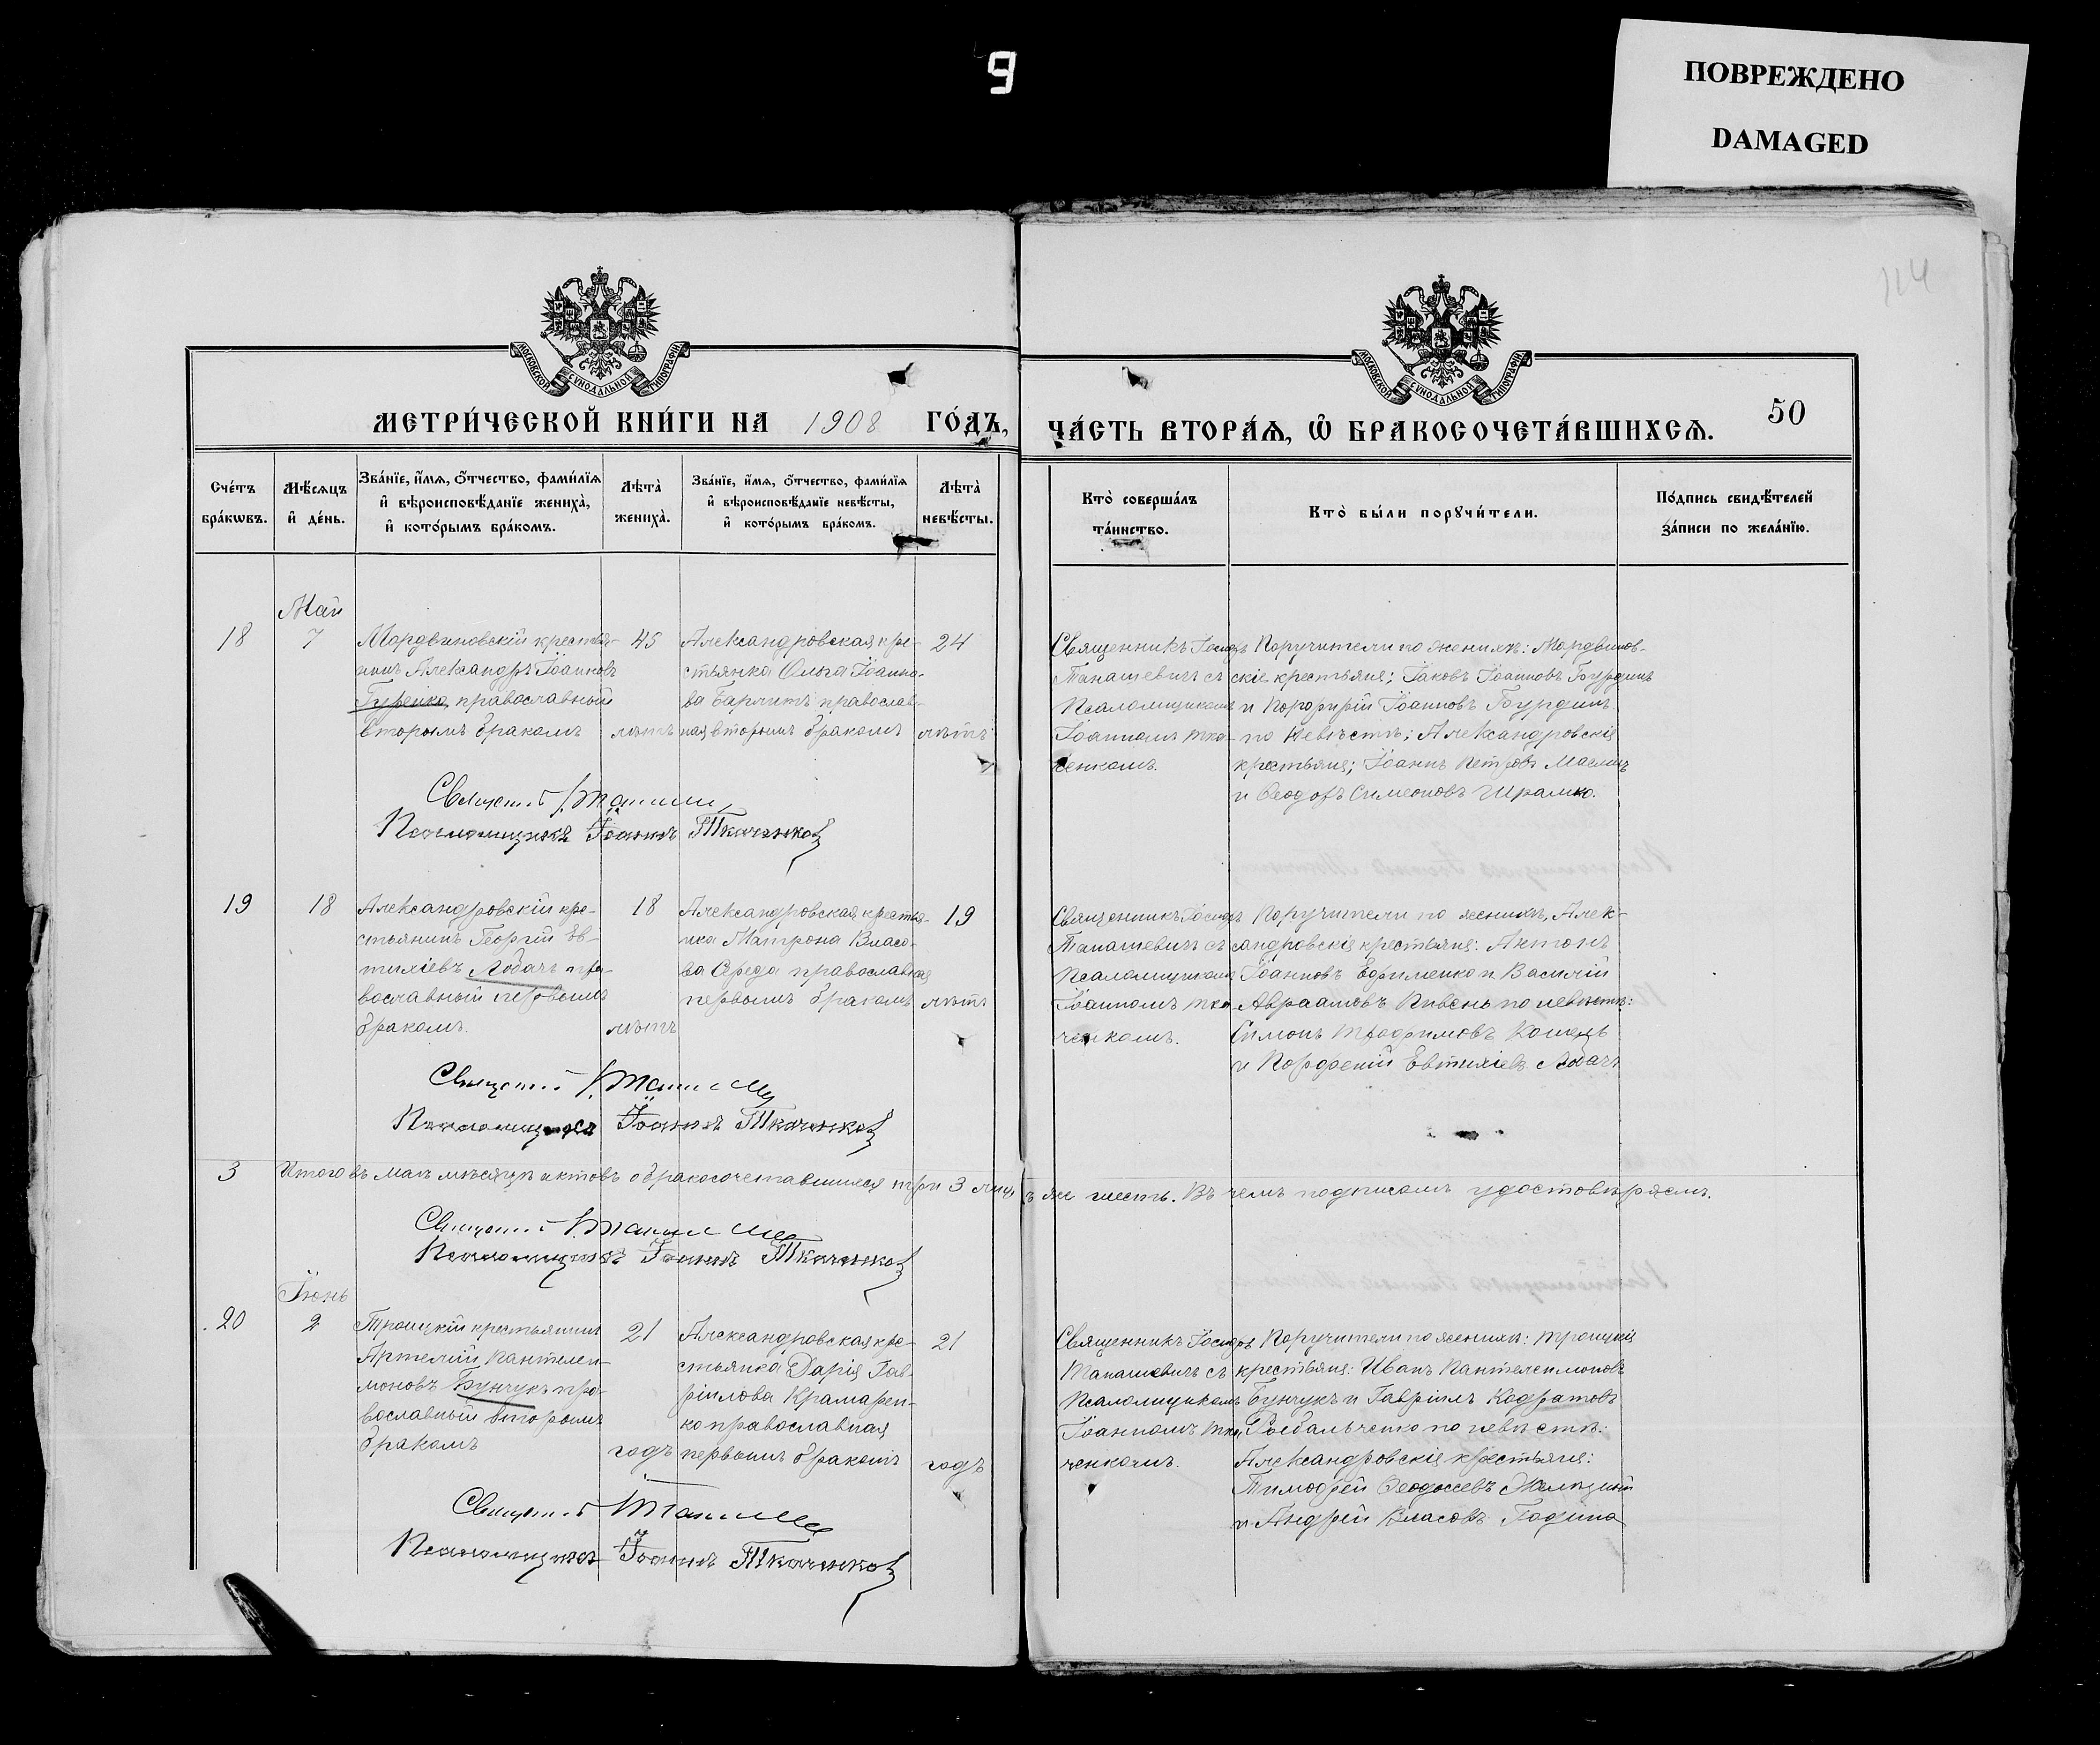 9
ПОВРЕЖДЕНО
DAMAGED
114
МОСКОВСКОЙ СѴНОДАЛЬНОЙ ТИПОГРАФІИ
МОСКОВСКОЙ СѴНОДАЛЬНОЙ ТИПОГРАФІИ
МЕТРИ́ЧЕСКОЙ КНИ́ГИ НА 1908 ГО́ДЪ,
ЧА́СТЬ ВТОРА́Ѧ, Ѽ БРАКОСОЧЕТА́ВШИХСѦ.
50
Счéтъ бра́кѡвъ.
Мѣ́сяцъ и҆ де́нь.
Зва́нїе, и҆́мѧ, ѻ҆́тчество, фами́лїѧ
и҆ вѣроисповѣ́данїе жениха̀,
и҆ кото́рымъ бра́комъ.
Лѣта̀ жениха̀.
Зва́нїе, и҆́мѧ, ѻ҆́тчество, фами́лїѧ
и҆ вѣроисповѣ́данїе невѣ́сты,
и҆ кото́рымъ бра́комъ.
Лѣта̀ невѣ́сты.
Кто̀ соверша́лъ
та́инство.
Кто̀ бы́ли порꙋчи́тели.
По́дпись свидѣ́телей
за́писи по жела́нїю.
Май
18
7
Мордвиновскій крестья-
нинъ Александръ Іоанновъ
Гуренко, православный
вторымъ бракомъ
45
лѣтъ
Александровская кре-
стьянка Ольга Іоанно-
ва православ-
ная вторымъ бракомъ
24
лѣтъ
Священникъ Іосифъ
Танашевичъ съ
Псаломщикомъ
Іоанномъ Тка-
ченкомъ.
Поручители по женихѣ: Мордвинов-
скіе крестьяне; Іаковъ Іоанновъ
и Порфирій Іоанновъ
по невѣстѣ; Александровскіе
крестьяне; Іоаннъ Петровъ
и Ѳеодоръ Симеоновъ Шрамко.
Псаломщикъ Іоаннъ Ткаченко
19
18
Александровскій кре-
стьянинъ Георгій Ев-
тихіевъ Лобачъ пра-
вославный первымъ
бракомъ.
18
лѣтъ
Александровская крестья-
нка Матрона Власо-
ва Середа православная
первымъ бракомъ
19
лѣтъ
Священникъ Іосифъ
Танашевичъ съ
Псаломщикомъ
Іоанномъ Тка-
ченкомъ.
Поручители по женихѣ, Алек-
сандровскіе крестьяне: Антонъ
Іоанновъ Ефименко и Василій
Авраамовъ Пивень по невѣстѣ:
Симонъ Трофимовъ
и Порфирій Евтихіевъ Лобачъ
Псаломщикъ Іоаннъ Ткаченко
3
Итого въ маѣ мѣсяцѣ актовъ о бракосочетавшихся три 3 лицъ же шесть. Въ чемъ подписомъ удостовѣряемъ.
Псаломщикъ Іоаннъ Ткаченко
Іюнь
20
2
Троицкій крестьянинъ
Артемій Пантелеи-
моновъ Бунчукъ пра-
вославный вторымъ
бракомъ
21
годъ
Александровская кре-
стьянка Дарія Гав-
ріилова Крамарен-
ко православная
первымъ бракомъ
21
годъ
Священникъ Іосифъ
Танашевичъ съ
Псаломщикомъ
Іоанномъ Тка-
ченкомъ.
Поручители по женихѣ: Троицкіе
крестьяне: Иванъ Пантелеимоновъ
Бунчукъ и Гавріилъ Кодратовъ
Рыбальченко по невѣстѣ:
Александровскіе крестьяне:
Тимофей Ѳеодосіевъ
и Андрей Власовъ Година
Псаломщикъ Іоаннъ Ткаченко